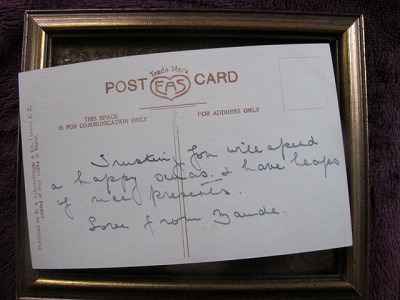 Trade Mark
POST CARD
EAS
THIS SPACE
IS FOR COMMUNICATION ONLY
FOR ADDRESS ONLY
Trusting you will spend
a happy Xmas. & have heaps
of nice presents.
Love from Maude.
Published by E. A. Schwerdtfeger & Co., London E. C.
Printed at their works in Berlin.